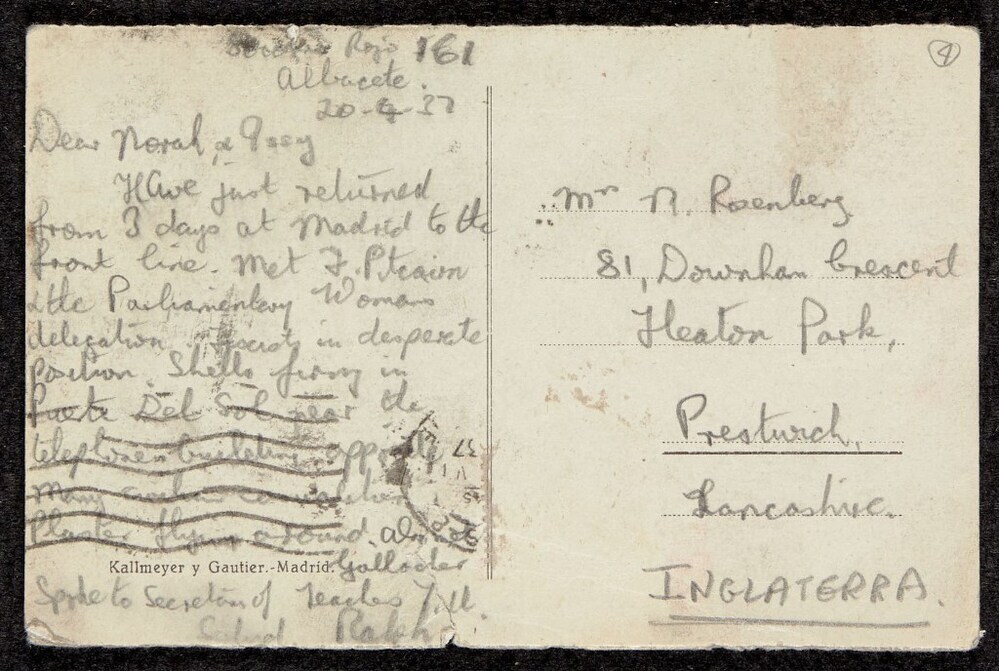 Socorro Rojo 161
Albacete.
20-4-37
Dear Norah, &
Have just returned
from 3 days at Madrid to the
front line. Met F. Pitcairn
& the Parliamentary Womans
delegation. Fascists in desperate
position. Shells firing in
Puerta Del Sol near the
telephone building opposite
many
Plaster flying around. also met
Gallacher
Spoke to Secretary of Teachers T.U.
Salud. Ralph.
Kallmeyer y Gautier.-Madrid.
4
Mrs N. Rosenberg
81, Downham Crescent
Heaton Park,
Prestwich,
Lancashire.
INGLATERRA.
37